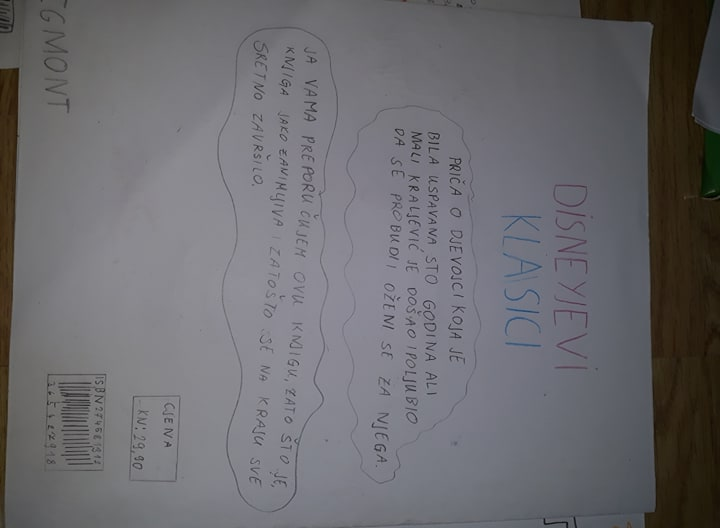 DISNEYJEVI
KLASICI
PRIČA O DJEVOJCI KOJA JE
BILA USPAVANA STO GODINA ALI
MALI KRALJEVIĆ JE DOŠAO I POLJUBIO
DA SE PROBUDI I OŽENI SE ZA NJEGA.
JA VAMA PREPORUČUJEM OVU KNJIGU, ZATO ŠTO JE,
KNJIGA JAKO ZANIMLJIVA I ZATOŠTO SE NA KRAJU SVE
SRETNO ZAVRŠILO.
EGMONT
CJENA
KN:29,90